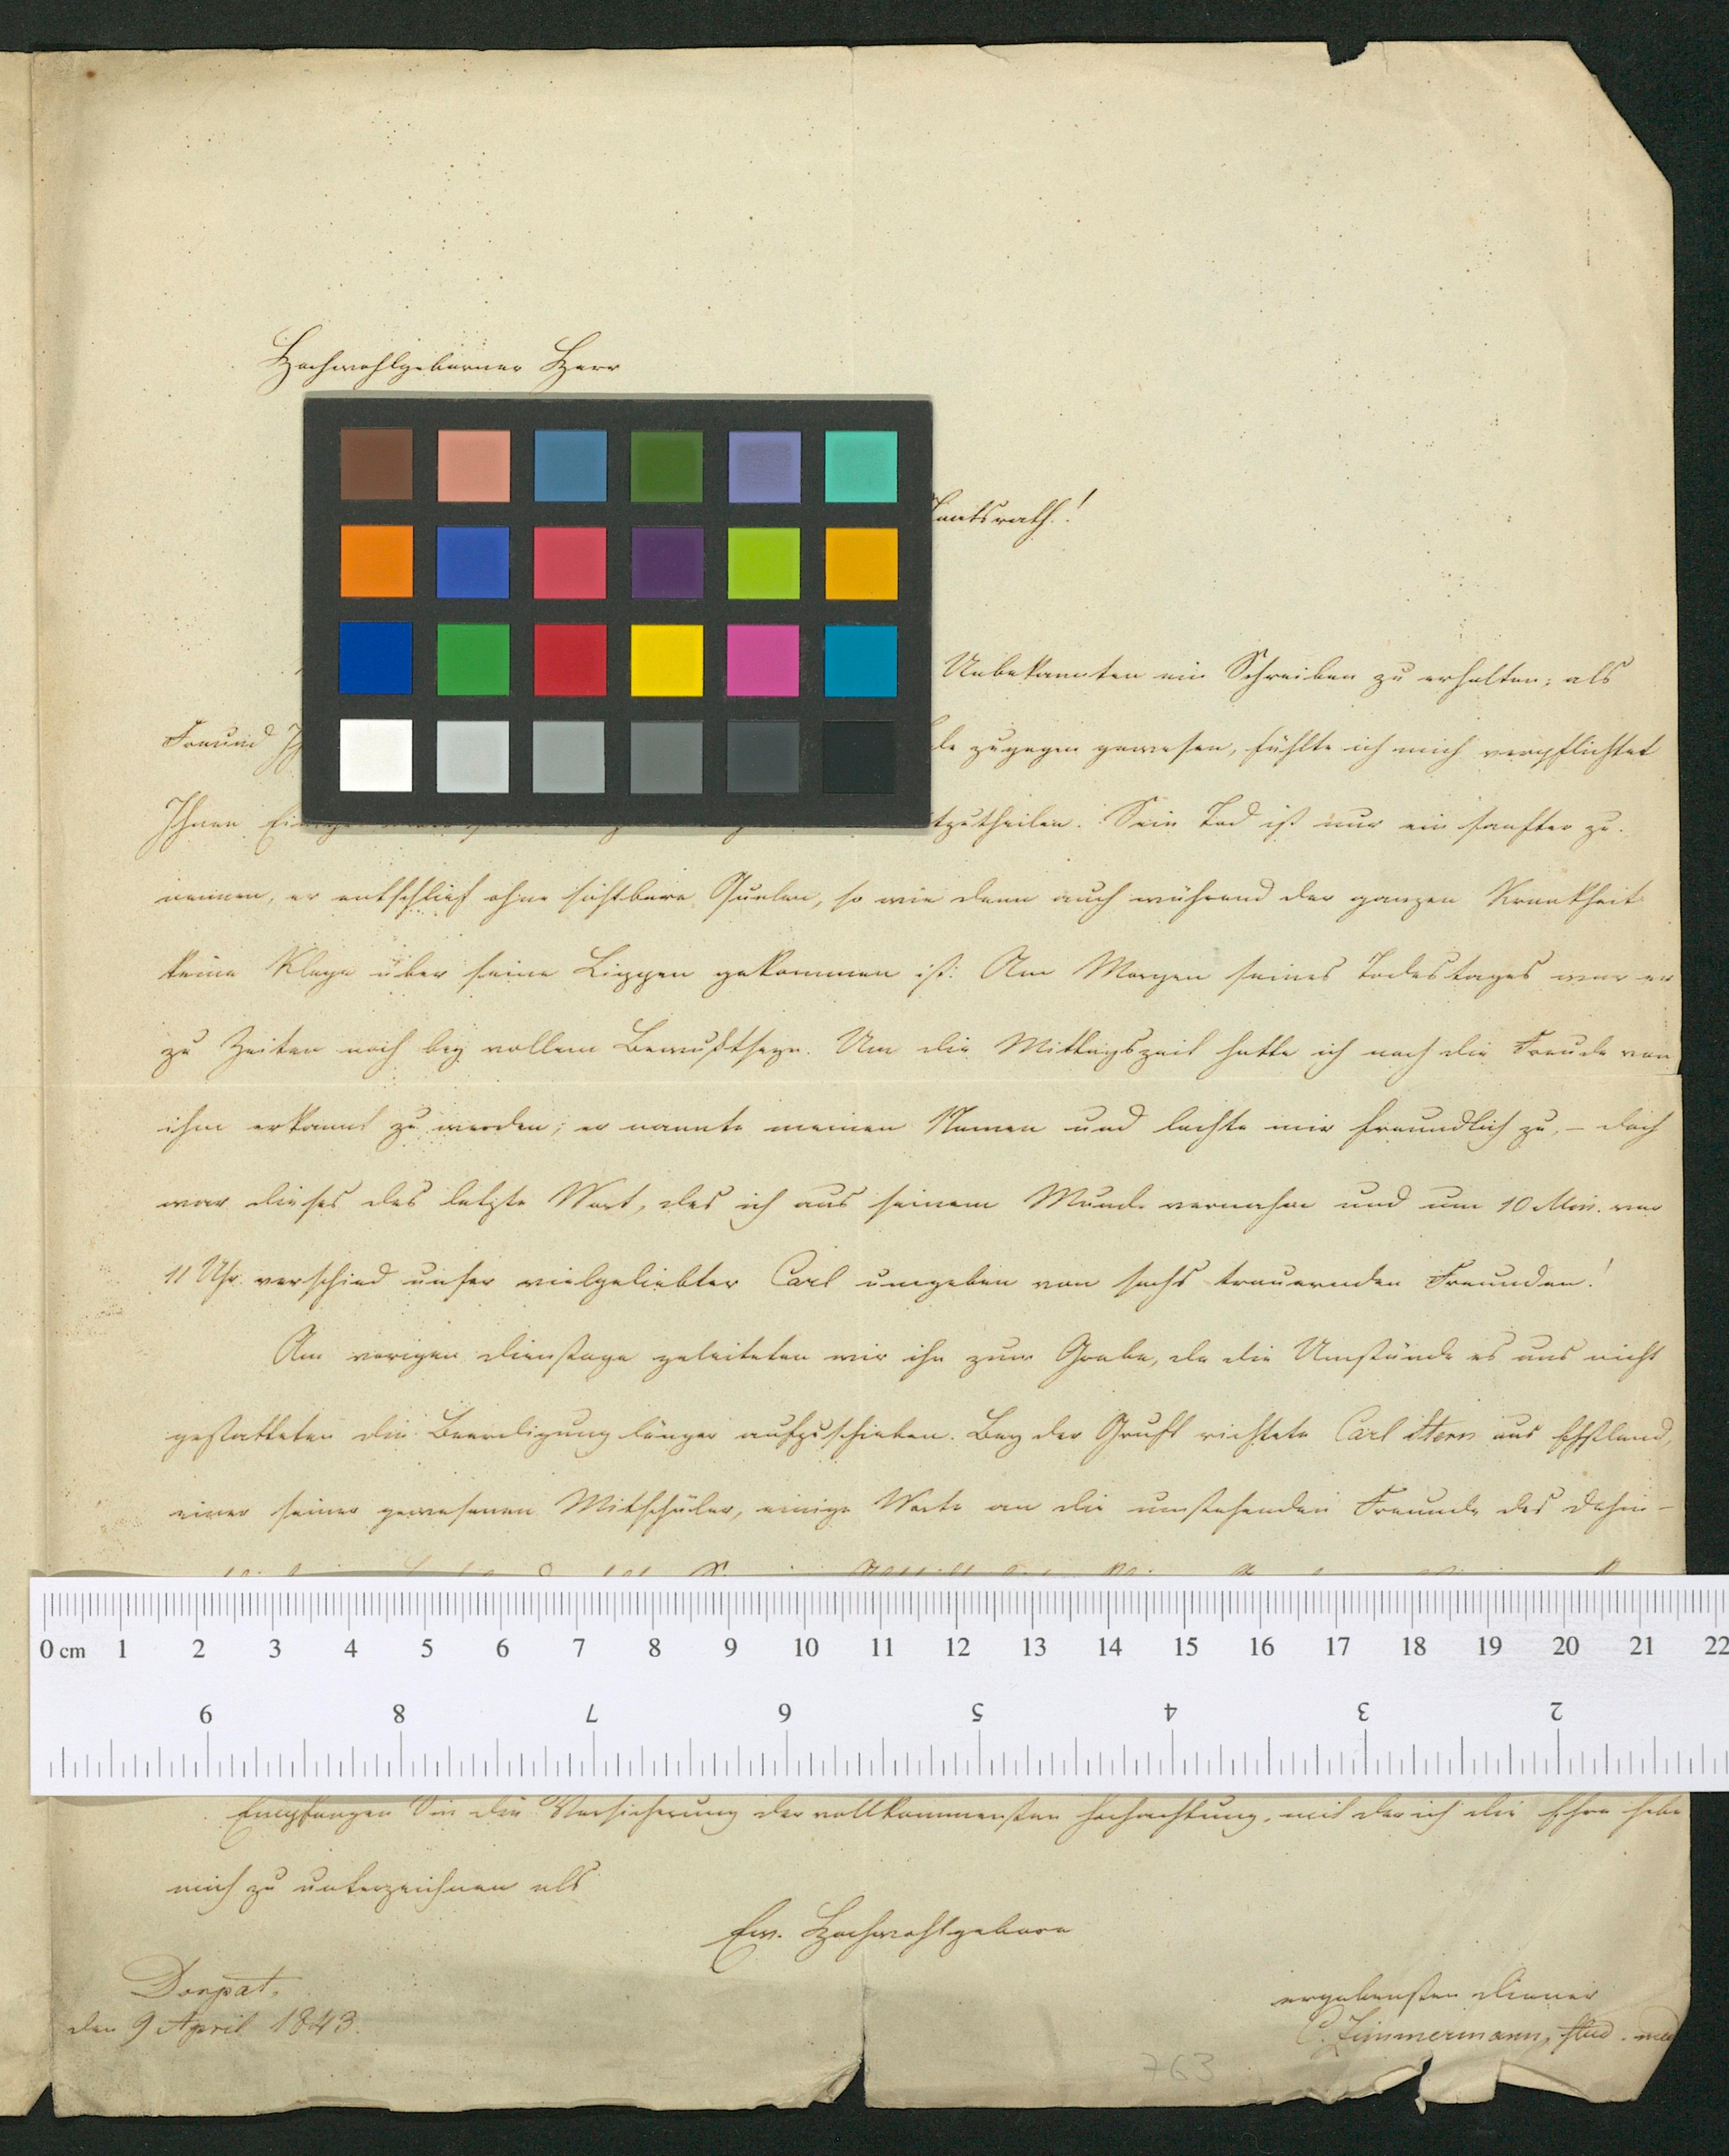 Hochwohlgeborner Herr
Unbekannten ein Schreiben zu erhalten; als
Freund zugegen gewesen, fühlte ich mich verpflichtet
Ihnen Sein Tod ist nur ein sanfter zu
nennen, er entschlief ohne sichtbare Qualen, so wie denn auch während der ganzen Krankheit
keine Klage über seine Lippen gekommen ist. Am Morgen seines Todestages war er
zu Zeiten noch bey vollem Bewußtseyn. Um die Mittagszeit hatte ich noch die Freude von
ihm erkannt zu werden; er nannte meinen Namen und lachte mir freundlich zu, – doch
war dieses das letzte Wort, das ich aus seinem Munde vernahm und um 10 Min. vor
11 Uhr verschied unser vielgeliebter Carl umgeben von sechs trauernden Freunden!
Am vorigen Dienstage geleiteten wir ihn zum Grabe, da die Umstände es uns nicht
gestatteten die Beerdigung länger aufzuschieben. Bey der Gruft richtete Carl Stern aus Ehstland,
einer seiner gewesenen Mitschüler, einige Worte an die umstehenden Freunde des Dahin-
0 cm 1 2 3 4 5 6 7 8 9 10 11 12 13 14 15 16 17 18 19 20 21 22
9 8 7 6 5 4 3 2
Empfangen Sie die Versicherung der vollkommensten Hochachtung, mit der ich die Ehre habe
mich zu unterzeichnen als
Ew. Hochwohlgeboren
ergebenster Diener
C. Zimmermann, stud. med
Dorpat,
den 9 April 1843.
763